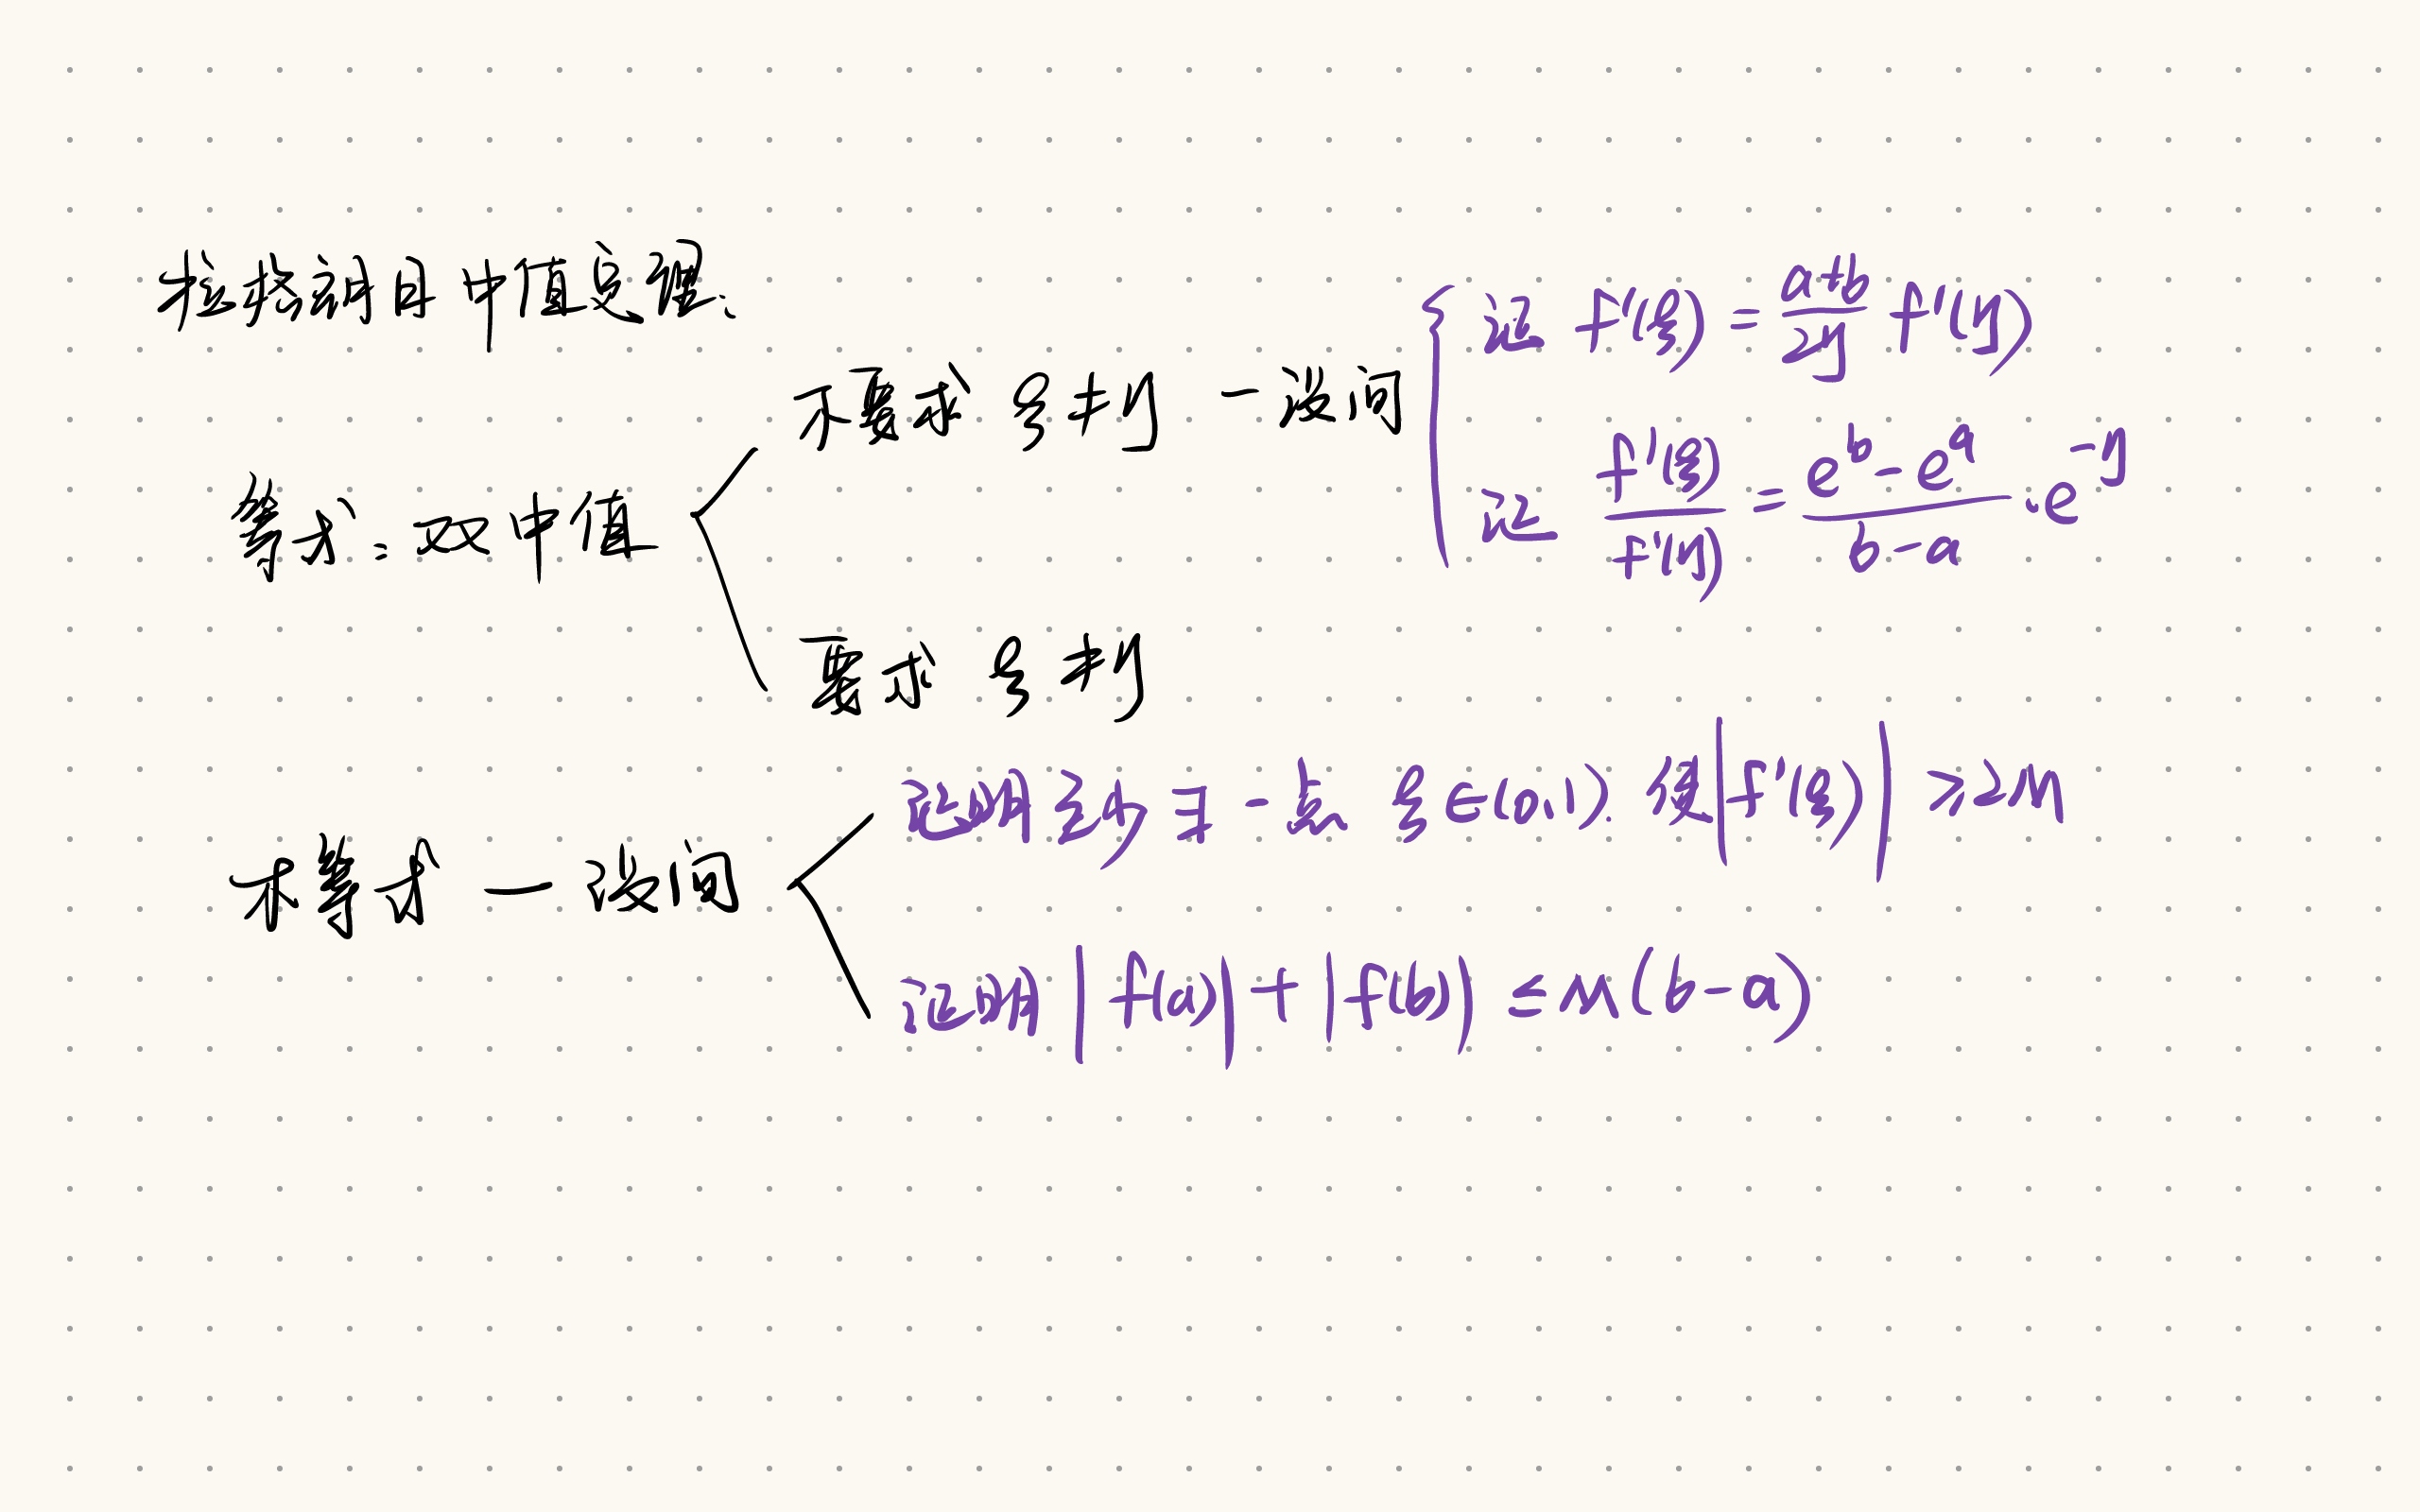 拉格朗日中值定理:
等式:双中值
不要求 ξ≠η 一设问
证 f'(ξ) = \frac{a+b}{2η} f'(η)
证 \frac{f'(ξ)}{f'(η)} = \frac{e^b - e^a}{b-a} · e^{-η}
要求 ξ≠η
不等式 — 设问
证明至少∃一点 ξ∈(0,1). 使|f'(ξ)| ≥2M
证明|f(a)|+|f(b)| ≤M(b-a)